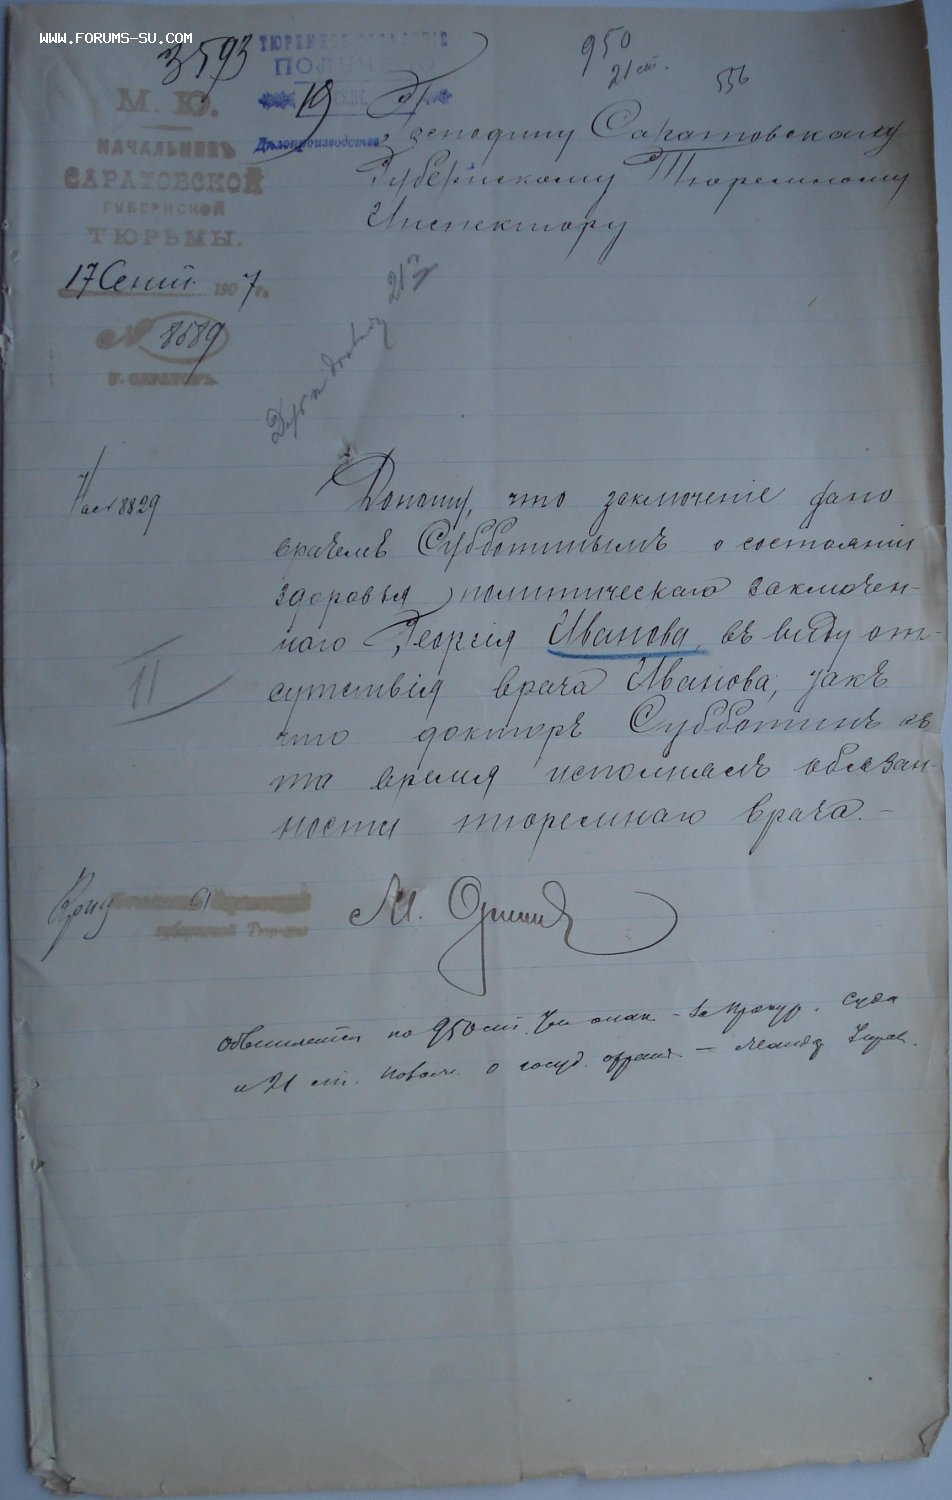 WWW.FORUMS-SU.COM
3593
ТЮРЕМНОЕ ОТДѢЛЕНІЕ
ПОЛУЧЕНО
19 СЕН.
Дѣлопроизводства
950
21 ст.
556
М. Ю.
НАЧАЛЬНИКЪ
САРАТОВСКОЙ
ГУБЕРНСКОЙ
ТЮРЬМЫ.
17 Сент. 1907 г.
№ 8589
Г. САРАТОВЪ.
Господину Саратовскому
Губернскому Тюремному
Инспектору
На № 8829
Доношу, что заключеніе дано
врачемъ Субботинымъ о состояніи
здоровья политическаго заключен-
наго Георгія Иванова, въ виду от-
сутствія врача Иванова, такъ
что докторъ Субботинъ въ
то время исполнялъ обязан-
ности тюремнаго врача.-
II
Начальникъ Саратовской
губернской Тюрьмы
М.
обвиняется по 950 ст. Уст. - За Прокур. Суда
и 21 ст. Полож. о госуд. охране -